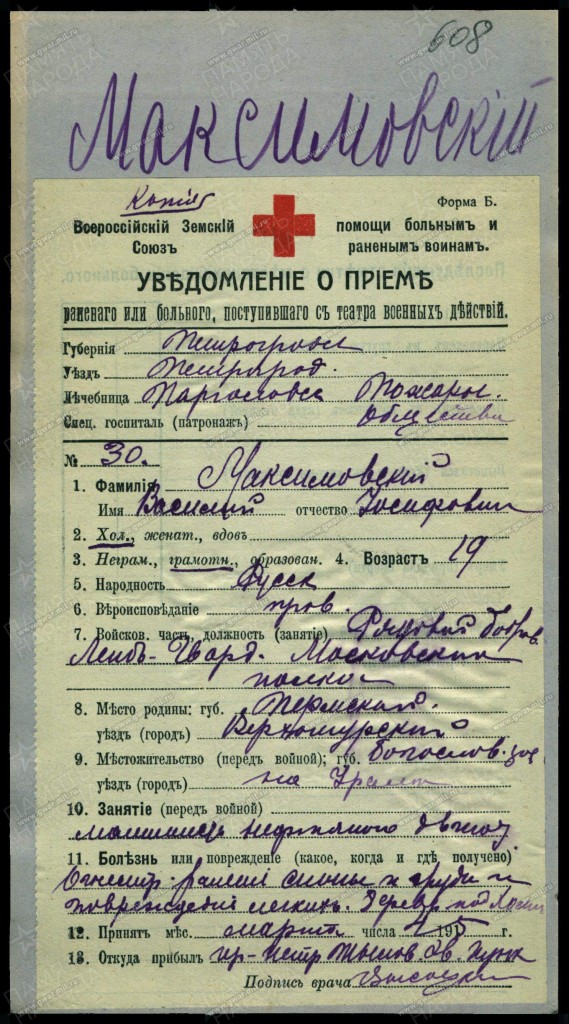 608
Максимовскій
Копія
Форма Б.
Всероссійскій Земскій Союзъ
помощи больнымъ и раненымъ воинамъ.
УВѢДОМЛЕНІЕ О ПРІЕМѢ
раненаго или больного, поступившаго съ театра военныхъ дѣйствій.
Губернія
Уѣздъ
Лѣчебница Парголовск Пожарн.
Спец. госпиталь (патронажъ) общества
№ 30.
1. Фамилія Максимовскій
Имя Василий отчество Іосифович
2. Хол., женат., вдов.
3. Неграм., грамотн., образован. 4. Возрастъ 19
5. Народность Русск
6. Вѣроисповѣданіе прав.
7. Войсков. часть, должность (занятіе) Рядовой
Лейб-Гвард. Московский
полка
8. Мѣсто родины: губ. Пермской.
уѣздъ (городъ) Верхотурский
9. Мѣстожительство (передъ войной); губ. Богослов. зав
уѣздъ (городъ) на Урале
10. Занятіе (передъ войной)
машинист нефтяного двигат
11. Болѣзнь или поврежденіе (какое, когда и гдѣ получено)
спины и груди и
повреждение легких. дерев. под
12. Принятъ мѣс. марта числа 2 1915 г.
13. Откуда прибылъ
Подпись врача
Память народа
www.gwar.mil.ru